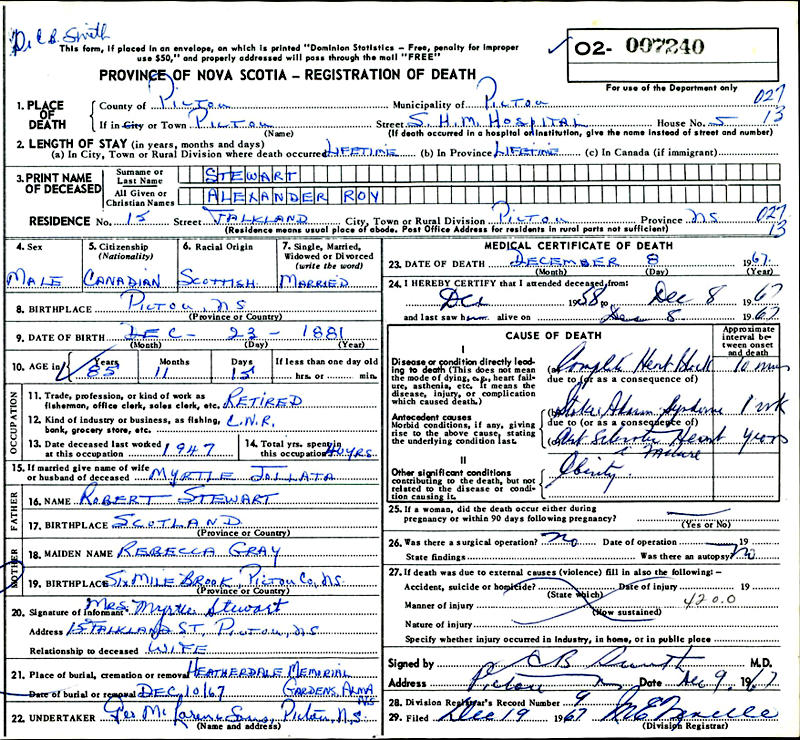 Dr C B Smith
This form, if placed in an envelope, on which is printed "Dominion Statistics – Free, penalty for improper
use $50," and properly addressed will pass through the mail "FREE"
O2- 007240
PROVINCE OF NOVA SCOTIA – REGISTRATION OF DEATH
For use of the Department only
1. PLACE OF DEATH
County of PICTOU Municipality of PICTOU 027
If in City or Town PICTOU Street S.H.M. HOSPITAL House No. 5 13
(Name) (If death occurred in a hospital or institution, give the name instead of street and number)
2. LENGTH OF STAY (in years, months and days)
(a) In City, Town or Rural Division where death occurred LIFETIME (b) In Province LIFETIME (c) In Canada (if immigrant)
3. PRINT NAME OF DECEASED
Surname or Last Name STEWART
All Given or Christian Names ALEXANDER ROY
RESIDENCE No. 15 Street FALKLAND City, Town or Rural Division PICTOU Province NS 027
(Residence means usual place of abode. Post Office Address for residents in rural parts not sufficient) 13
4. Sex
MALE
5. Citizenship (Nationality)
CANADIAN
6. Racial Origin
SCOTTISH
7. Single, Married, Widowed or Divorced (write the word)
MARRIED
8. BIRTHPLACE PICTOU, NS
(Province or Country)
9. DATE OF BIRTH DEC - 23 - 1881
(Month) (Day) (Year)
10. AGE in Years Months Days If less than one day old
85 11 15 hrs. or min.
OCCUPATION
11. Trade, profession, or kind of work as
fisherman, office clerk, sales clerk, etc. RETIRED
12. Kind of industry or business, as fishing,
bank, grocery store, etc. C.N.R.
13. Date deceased last worked at this occupation 1947
14. Total yrs. spent in this occupation 40 YRS.
15. If married give name of wife
or husband of deceased MYRTLE JOLLATA
FATHER
16. NAME ROBERT STEWART
17. BIRTHPLACE SCOTLAND
(Province or Country)
MOTHER
18. MAIDEN NAME REBECCA GRAY
19. BIRTHPLACE SIX MILE BROOK, PICTOU CO, NS.
(Province or Country)
20. Signature of informant Mrs. Myrtle Stewart
Address 15 FALKLAND ST, PICTOU, NS
Relationship to deceased WIFE
21. Place of burial, cremation or removal HEATHERDALE MEMORIAL
Date of burial or removal DEC, 10/67 GARDENS, ALMA NS
22. UNDERTAKER Geo McLaren Sons, Pictou, N.S.
(Name and address)
MEDICAL CERTIFICATE OF DEATH
23. DATE OF DEATH DECEMBER 8 1967
(Month) (Day) (Year)
24. I HEREBY CERTIFY that I attended deceased from:
Dec 1958 to Dec 8 1967
and last saw him alive on Dec 8 1967
CAUSE OF DEATH
Approximate interval between onset and death
I
Disease or condition directly leading to death (This does not mean
the mode of dying, e.g., heart failure, asthenia, etc. It means the
disease, injury, or complication which caused death.)
Complete Heart Block 10 mins
due to (or as a consequence of)
Antecedent causes
Morbid conditions, if any, giving rise to the above cause, stating
the underlying condition last.
Stokes Adams Syndrome 1 wk
due to (or as a consequence of)
Art Sclerotic Heart years
c Failure
II
Other significant conditions
contributing to the death, but not related to the disease or condition causing it.
Obesity
25. If a woman, did the death occur either during
pregnancy or within 90 days following pregnancy?
(Yes or No)
26. Was there a surgical operation? No Date of operation 19
State findings Was there an autopsy? No
27. If death was due to external causes (violence) fill in also the following:-
Accident, suicide or homicide? Date of injury 19
(State which)
Manner of injury 420.0
(How sustained)
Nature of injury
Specify whether injury occurred in industry, in home, or in public place
Signed by C B Smith M.D.
Address Pictou Date Dec 9 1967
28. Division Registrar's Record Number 9
29. Filed Dec 19 1967
(Division Registrar)